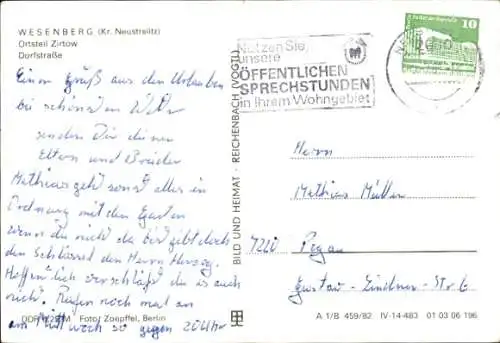 WESENBERG (Kr. Neustrelitz)
Ortsteil Zirtow
Dorfstraße
Einen Gruß aus dem Urlauben
bei schönstem Wetter
senden Dir deinen
Eltern und Brüder
Mathias geht sonst alles in
Ordnung mit den Garten
wenn du nicht da bist gibt doch
den Schlüssel den Herrn Herzog.
Hoffentlich verschläfst du es auch
nicht. Rufen noch mal an
am Mittwoch so gegen 20 Uhr
DDR Foto: Zoepffel, Berlin
BILD UND HEIMAT · REICHENBACH (VOGTL)
Nutzen Sie
unsere
ÖFFENTLICHEN
SPRECHSTUNDEN
in Ihrem Wohngebiet
10
Herrn
Mathias Müller
7220 Pegau
Gustav-Lindner-Str. 6
A 1/B 459/82 IV-14-483 01 03 06 196